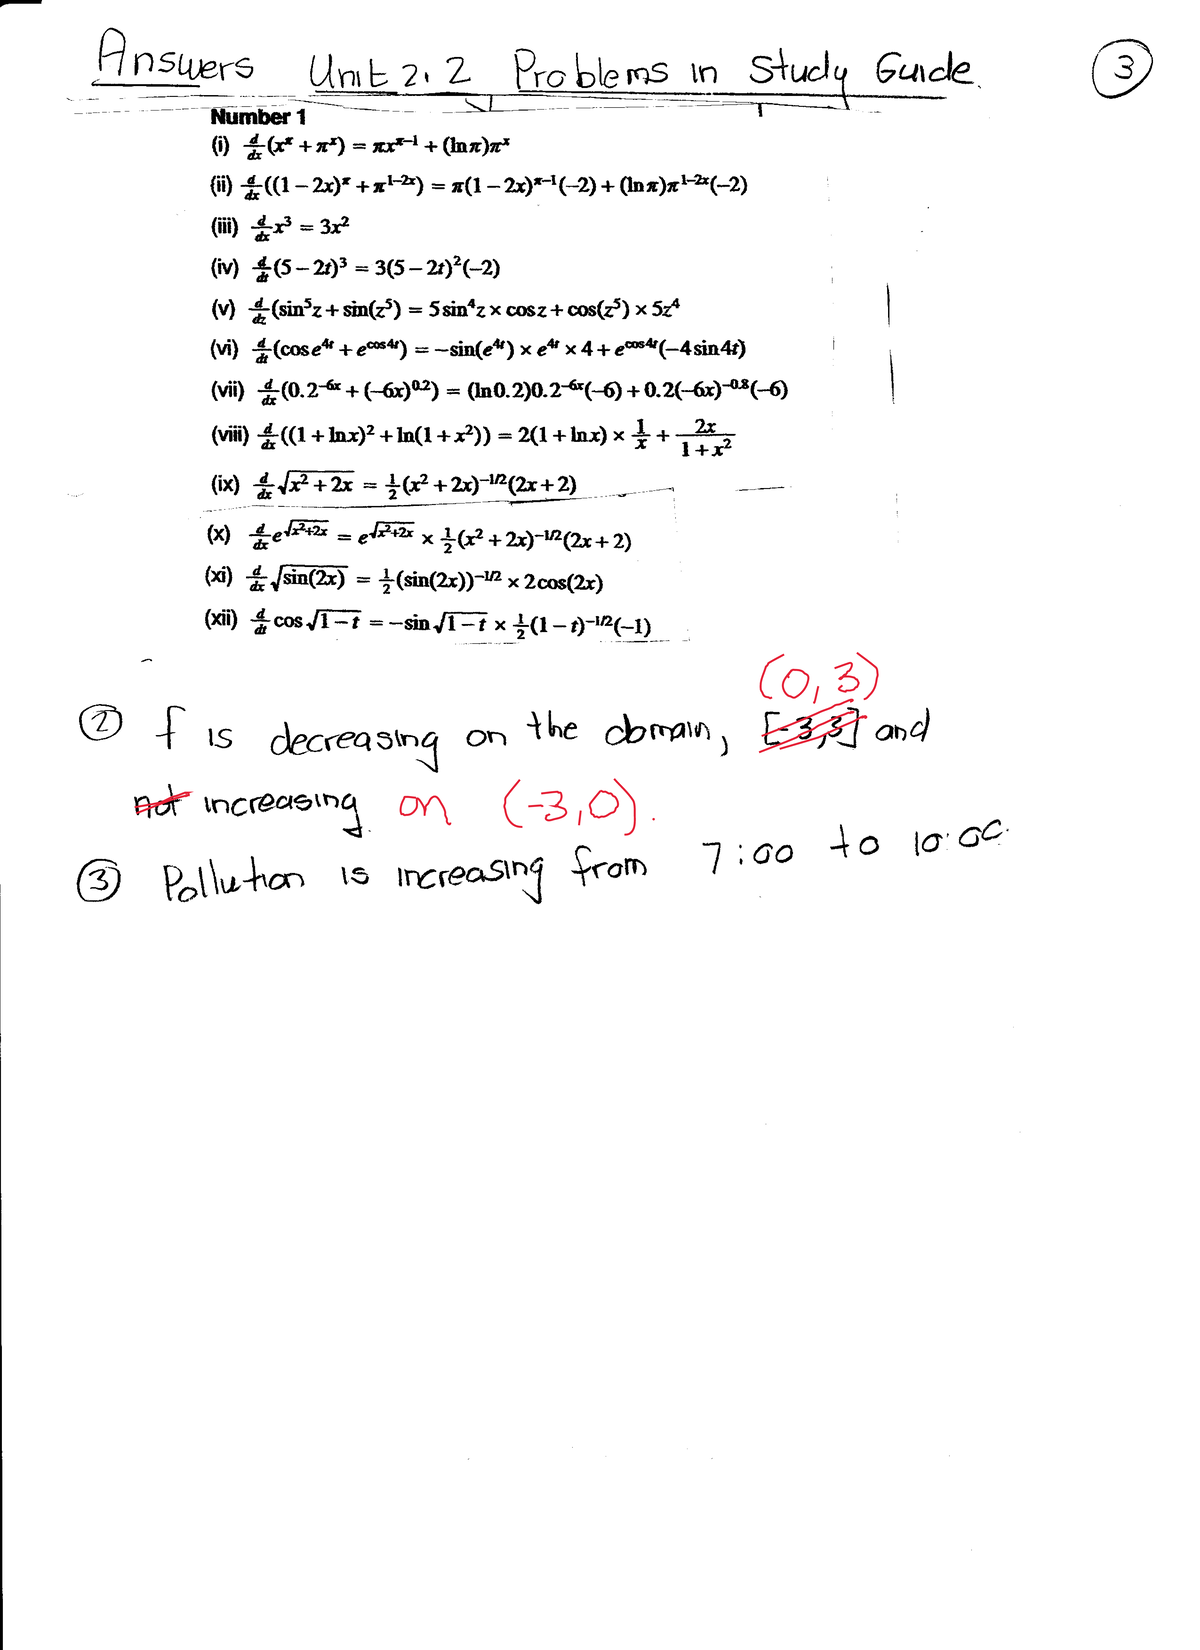 Answers Unit 2.2 Problems in Study Guide. 3
Number 1
(i) d/dx (x^π + π^x) = πx^(π–1) + (ln π)π^x
(ii) d/dx ((1 – 2x)^π + π^(1–2x)) = π(1 – 2x)^(π–1)(–2) + (ln π)π^(1–2x)(–2)
(iii) d/dx x³ = 3x²
(iv) d/dt (5 – 2t)³ = 3(5 – 2t)²(–2)
(v) d/dz (sin⁵z + sin(z⁵) = 5 sin⁴z × cos z + cos(z⁵) × 5z⁴
(vi) d/dt (cos e^(4t) + e^(cos 4t)) = –sin(e^(4t)) × e^(4t) × 4 + e^(cos 4t)(–4 sin 4t)
(vii) d/dx (0.2^(–6x) + (–6x)^0.2) = (ln 0.2)0.2^(–6x)(–6) + 0.2(–6x)^(–0.8)(–6)
(viii) d/dx ((1 + ln x)² + ln(1 + x²)) = 2(1 + ln x) × 1/x + 2x/(1 + x²)
(ix) d/dx √(x² + 2x) = ½(x² + 2x)^(–1/2)(2x + 2)
(x) d/dx e^√(x²+2x) = e^√(x²+2x) × ½(x² + 2x)^(–1/2)(2x + 2)
(xi) d/dx √sin(2x) = ½(sin(2x))^(–1/2) × 2 cos(2x)
(xii) d/dt cos √(1 – t) = –sin √(1 – t) × ½(1 – t)^(–1/2)(–1)
(0, 3)
② f is decreasing on the domain, [-3,3] and
not increasing on (-3,0).
③ Pollution is increasing from 7:00 to 10:00.